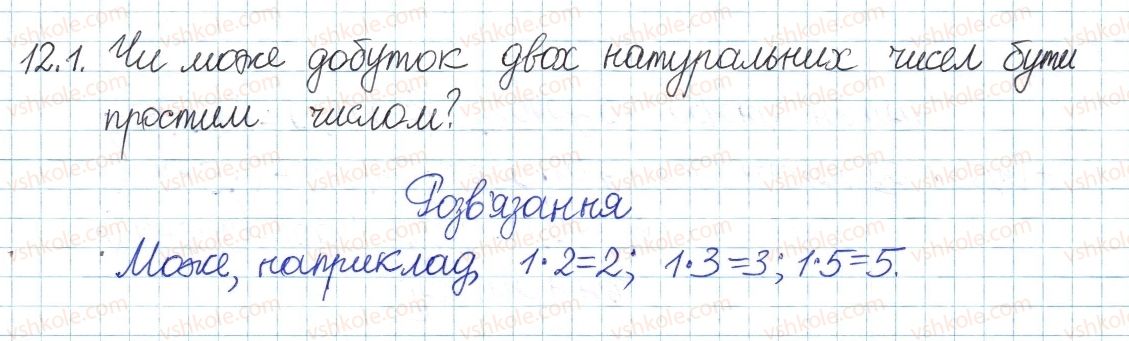 12.1. Чи може добуток двох натуральних чисел бути
простим числом?
Розв'язання
Може, наприклад, 1·2=2; 1·3=3; 1·5=5.